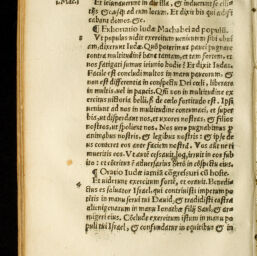 j. Mac.
Et ieiunauerunt in die illa, & induerunt se cili-
tabant domos. &c.
¶ Exhortatio Iudæ Machabei ad populū.
Vt populus vidit exercitum venientem sibi obui
am, dixerunt Iudæ. Quō poterimus pauci pugnare
contra multitudinē tantam, et tam fortem, et
nos fatigati sumus ieiunio hodie? Et dixit Iudas.
Facile est concludi multos in manu paucorū, &
non est differentia in conspectu Dei celi, liberare
in multis, uel in paucis. Qm̄ non in multitudine ex
ercitus uictoria belli, sed de celo fortitudo est. Ipsi
ueniunt ad nos in multitudine contumaci, et super
bia, ut disperdant nos, et uxores nostras, & filios
nostros, ut spolient nos. Nos uero pugnabimus p
animabus nostris, & legibus nostris: & ipse do
minus conteret eos ante faciem nostram. Vos autem ne ti
mueritis eos. Vt autē cessauit loqui, irruit in eos sub
ito: et contritus est Seron in cōspectu eius.
¶ Oratio Iudæ iamiā cōgressuri cū hoste.
Et uiderunt exercitum fortē, et orauit. Benedi-
ctus es saluator Israel, qui contriuisti impetum po
tentis in manu serui tui Dauid, & tradidisti castra
alienigenarum in manu Ionathæ filij Saul, & ar
migeri eius. Cōclude exercitum istum in manu po
puli tui Israel, & confundatur in equitibus & in